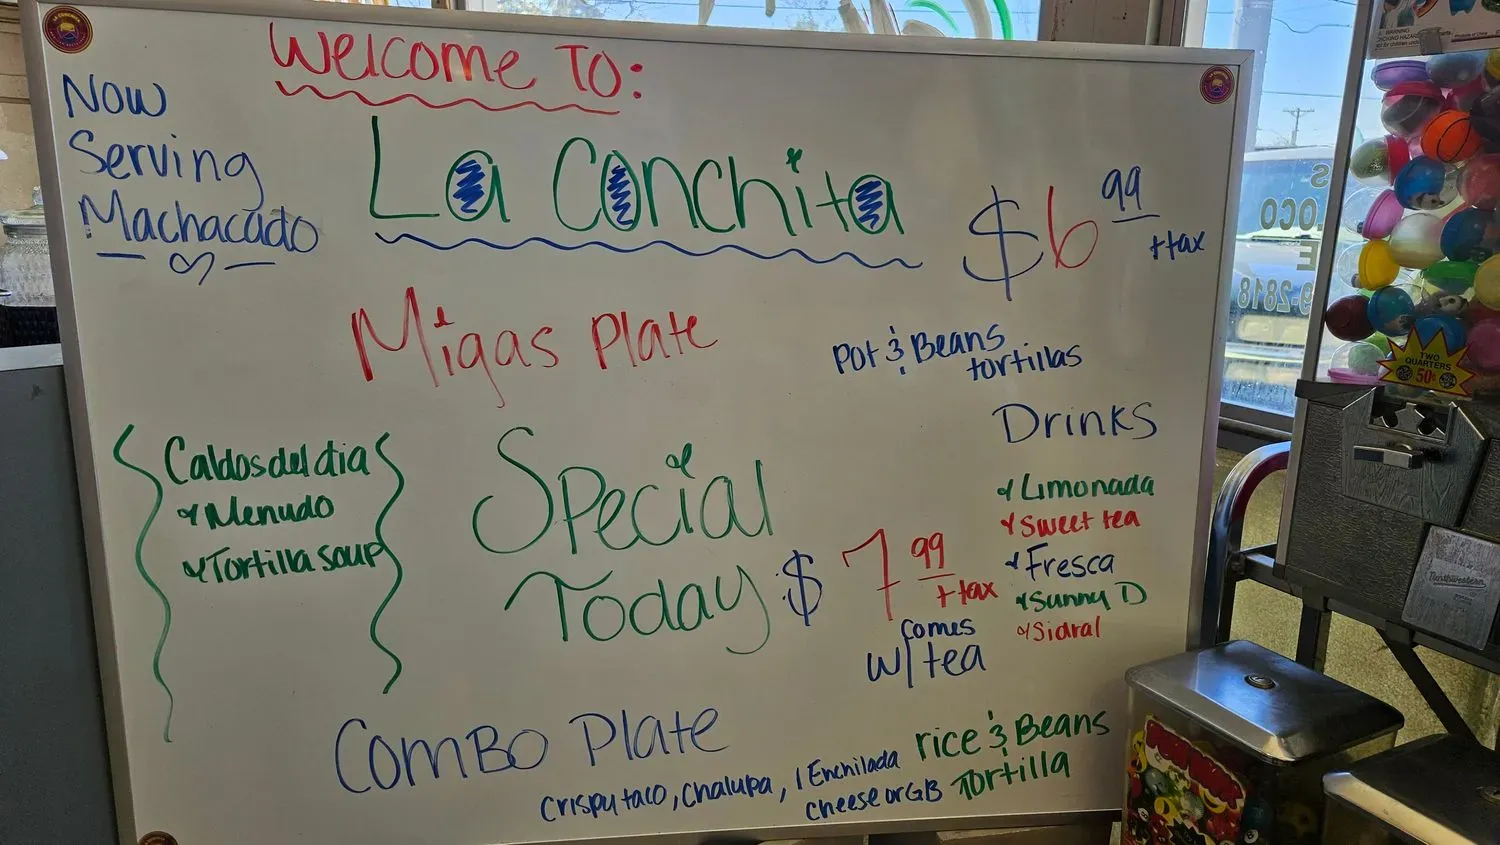 Welcome To:
Now
Serving
Machacado
La Conchita
$6 99
+tax
Migas Plate
Pot & Beans
tortillas
Caldos del dia
Menudo
Tortilla soup
Special
Today $7 99
+tax
comes
w/ tea
Drinks
Limonada
Sweet tea
Fresca
Sunny D
Sidral
Combo Plate
Crispy taco, Chalupa, 1 Enchilada
cheese or GB
rice & Beans
Tortilla
WARNING
TWO
QUARTERS
50¢
Northwestern
S
OCO
E
9.2818